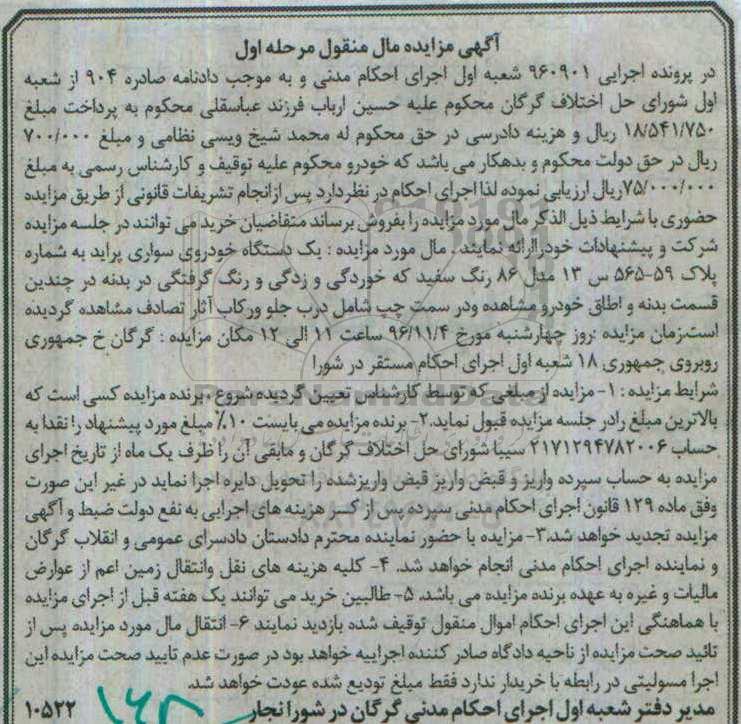 آگهی مزایده مال منقول مرحله اول
در پرونده اجرایی ۹۶۰۹۰۱ شعبه اول اجرای احکام مدنی و به موجب دادنامه صادره ۹۰۴ از شعبه
اول شورای حل اختلاف گرگان محکوم علیه حسین ارباب فرزند عباسقلی محکوم به پرداخت مبلغ
۱۸/۵۴۱/۷۵۰ ریال و هزینه دادرسی در حق محکوم له محمد شیخ ویسی نظامی و مبلغ ۷۰۰/۰۰۰
ریال در حق دولت محکوم و بدهکار می باشد که خودرو محکوم علیه توقیف و کارشناس رسمی به مبلغ
۷۵/۰۰۰/۰۰۰ریال ارزیابی نموده لذا اجرای احکام در نظر دارد پس از انجام تشریفات قانونی از طریق مزایده
حضوری با شرایط ذیل الذکر مال مورد مزایده را بفروش برساند متقاضیان خرید می توانند در جلسه مزایده
شرکت و پیشنهادات خودراارائه نمایند. مال مورد مزایده : یک دستگاه خودروی سواری پراید به شماره
پلاک ۵۹-۵۶۵ س ۱۳ مدل ۸۶ رنگ سفید که خوردگی و زدگی و رنگ گرفتگی در بدنه در چندین
قسمت بدنه و اطاق خودرو مشاهده ودر سمت چپ شامل درب جلو ورکاب آثار تصادف مشاهده گردیده
است.زمان مزایده :روز چهارشنبه مورخ ۹۶/۱۱/۴ ساعت ۱۱ الی ۱۲ مکان مزایده : گرگان خ جمهوری
روبروی جمهوری ۱۸ شعبه اول اجرای احکام مستقر در شورا
شرایط مزایده : ۱- مزایده از مبلغی که توسط کارشناس تعیین گردیده شروع ، برنده مزایده کسی است که
بالاترین مبلغ رادر جلسه مزایده قبول نماید.۲- برنده مزایده می بایست ۱۰٪ مبلغ مورد پیشنهاد را نقدا به
حساب ۲۱۷۱۲۹۴۷۸۲۰۰۶ سیبا شورای حل اختلاف گرگان و مابقی آن را ظرف یک ماه از تاریخ اجرای
مزایده به حساب سپرده واریز و قبض واریز قبض واریزشده را تحویل دایره اجرا نماید در غیر این صورت
وفق ماده ۱۲۹ قانون اجرای احکام مدنی سپرده پس از کسر هزینه های اجرایی به نفع دولت ضبط و آگهی
مزایده تجدید خواهد شد.۳- مزایده با حضور نماینده محترم دادستان دادسرای عمومی و انقلاب گرگان
و نماینده اجرای احکام مدنی انجام خواهد شد. ۴- کلیه هزینه های نقل وانتقال زمین اعم از عوارض
مالیات و غیره به عهده برنده مزایده می باشد. ۵- طالبین خرید می توانند یک هفته قبل از اجرای مزایده
با هماهنگی این اجرای احکام اموال منقول توقیف شده بازدید نمایند ۶- انتقال مال مورد مزایده پس از
تائید صحت مزایده از ناحیه دادگاه صادر کننده اجراییه خواهد بود در صورت عدم تایید صحت مزایده این
اجرا مسولیتی در رابطه با خریدار ندارد فقط مبلغ تودیع شده عودت خواهد شد.
مدیر دفتر شعبه اول اجرای احکام مدنی گرگان در شورا نجار
۱۰۵۲۲
ParsNamadData